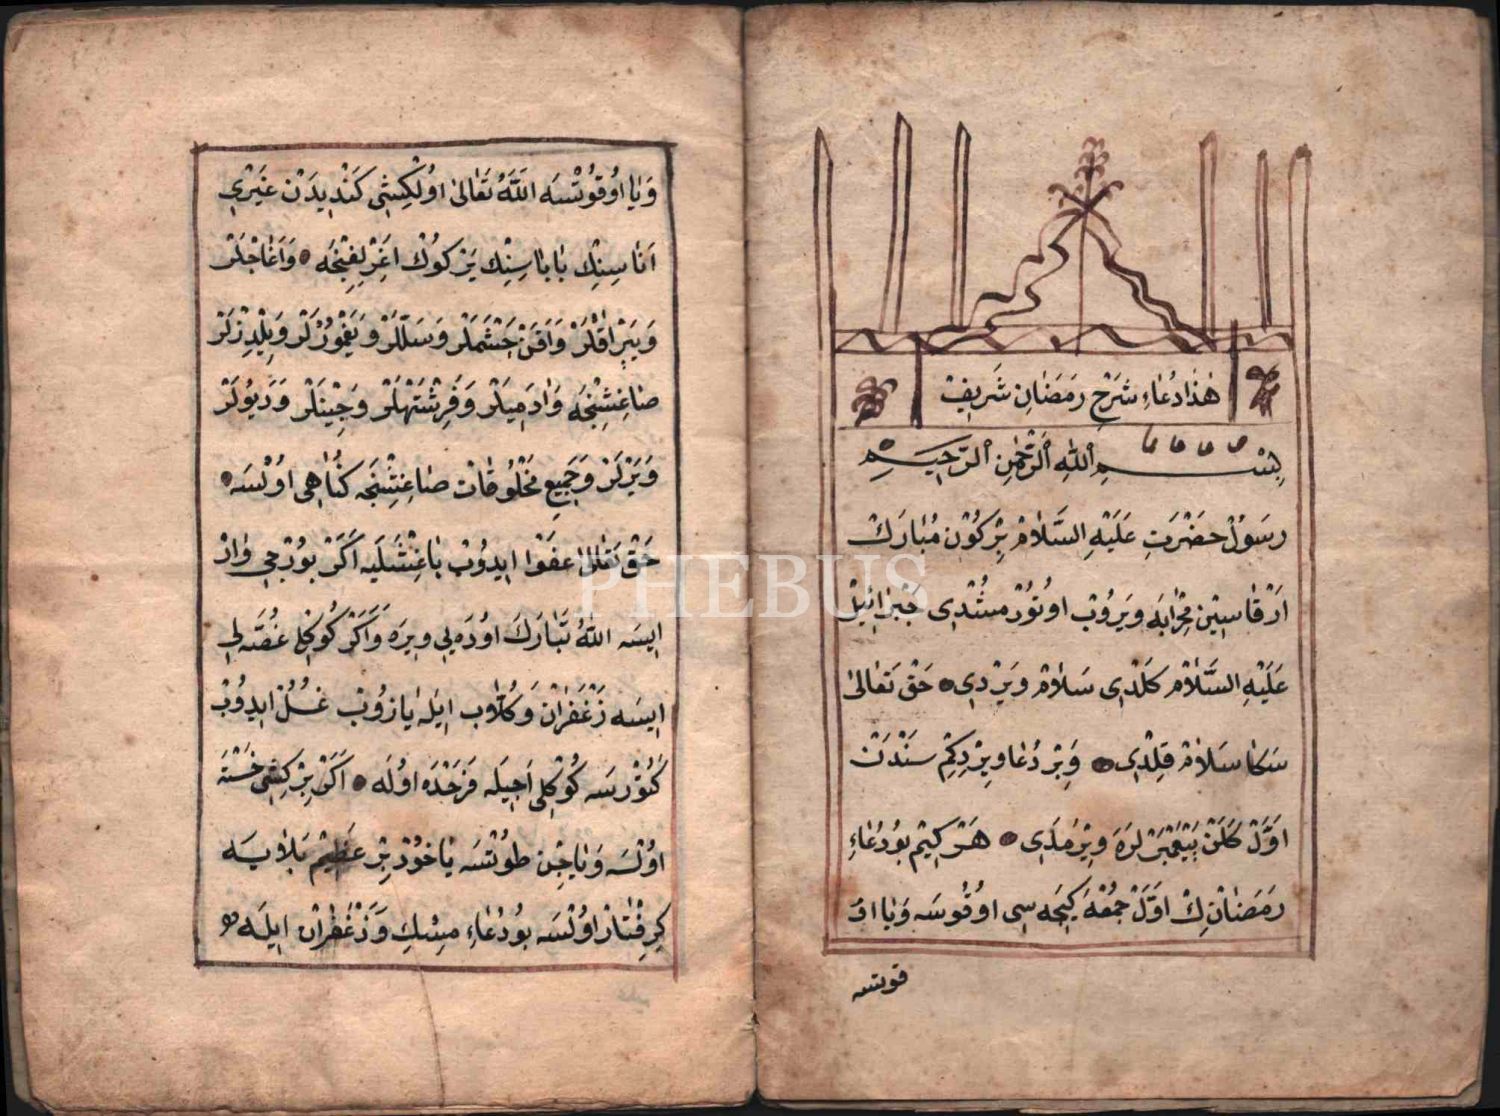 هٰذَا دُعَاءِ شَرْحِ رَمَضَانِ شَرِيفْ
بِسْمِ اللّٰهِ الرَّحْمٰنِ الرَّحِيمِ
رَسُولْ حَضْرَتِ عَلَيْهِ السَّلَامْ بِرْ كُونْ مُبَارَكْ
اَرْقَاسِينْ مِحْرَابَه وَيرُوبْ اوتُورْمِشْدِى جَبْرَائِيلْ
عَلَيْهِ السَّلَامْ كَلْدِى سَلَامْ وِيرْدِى حَقْ تَعَالىٰ
سَكَا سَلَامْ قِلْدِى وَبِرْ دُعَا وِيرْدِكِمْ سَنْدَنْ
اوَّلْ كَلَنْ بَيْغَمْبَرْلَرَه وِيرْمَدِى هَرْ كِيمْ بُو دُعَاءِ
رَمَضَانِكْ اوَّلْ جُمْعَه كِيجَه سِى اوقُوسَه وَيَا اوُ
قوتسه
وَيَا اوُقُوتْسَه اللّٰهُ تَعَالىٰ اوُلْكِشِى كَنْدِيدَنْ غَيْرِى
اَنَاسِنِكْ بَابَاسِنِكْ يَرْ كُوكْ اَغِرْلِغِنْجَه وَاَغَاجْلَرْ
وَيَپْرَاقْلَرْ وَاَقَنْ چَشْمَلَرْ وَسَلّلَرْ وَيَغْمُورْلَرْ وَيِلْدِزْلَرْ
صَاغِشِنْجَه وَادَمِيلَرْ وَفَرِشْتَهْلَرْ وَجِينْلَرْ وَدَيُولَرْ
وَيَرْلَرْ وَجَمِيعِ مَخْلُوقَاتْ صَاغِشِنْجَه كُنَاهِى اوُلْسَه
حَقْ تَعَالىٰ عَفْوْ ايدُوبْ بَاغِشْلَيَه اَكَرْ بُورْجِى وَارْ
ايسَه اللّٰهُ تَبَارَكَ اوُدَه يِى وِيرَه وَاَكَرْ كُوكْلِ غُصَّه لِى
ايسَه زَعْفَرَانْ وَكُلَابْ ايلَه يَازُوبْ غُسُلْ ايدُوبْ
كَتُورْسَه كُوكْلِى اَچِيلَه فَرَحْدَه اوُلَه اَكَرْ بِرْ كِشِى خَسْتَه
اوُلْسَه وَيَا جِنْ طُوتْسَه يَا خُودْ بِرْ عَظِيمْ بَلَايَه
كِرِفْتَارْ اوُلْسَه بُو دُعَاءِ مِسْكِ وَزَعْفَرَانْ ايلَه
PHEBUS